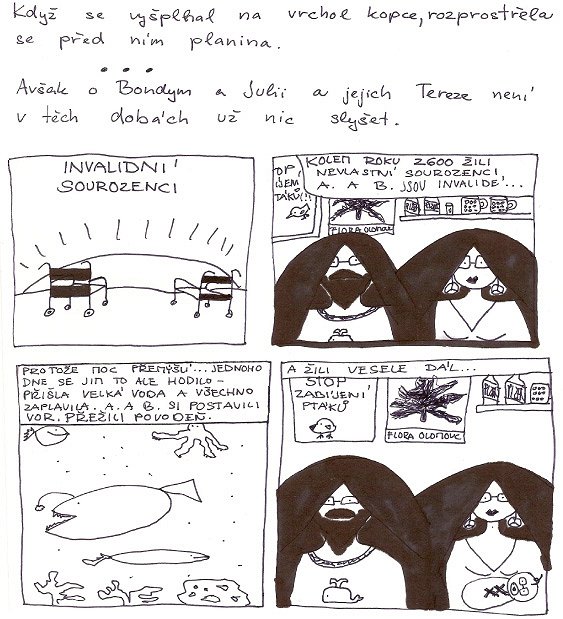 Když se vyšplhal na vrchol kopce, rozprostřela
se před ním planina.
• • •
Avšak o Bondym a Julii a jejich Tereze není
v těch dobách už nic slyšet.
INVALIDNÍ
SOUROZENCI
KOLEM ROKU 2600 ŽILI
NEVLASTNÍ SOUROZENCI
A. A B. JSOU INVALIDÉ...
OP
IJENÍ
TÁKŮ!!
FLORA OLOMOUC
PROTOŽE MOC PŘEMÝŠLÍ... JEDNOHO
DNE SE JIM TO ALE HODILO -
PŘIŠLA VELKÁ VODA A VŠECHNO
ZAPLAVILA. A. A B. SI POSTAVILI
VOR. PŘEŽILI POVODEŇ.
A ŽILI VESELE DÁL...
STOP
ZABÍJENÍ
PTÁKŮ
FLORA OLOMOUC